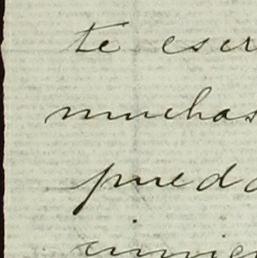 te escr
muchas
pueda